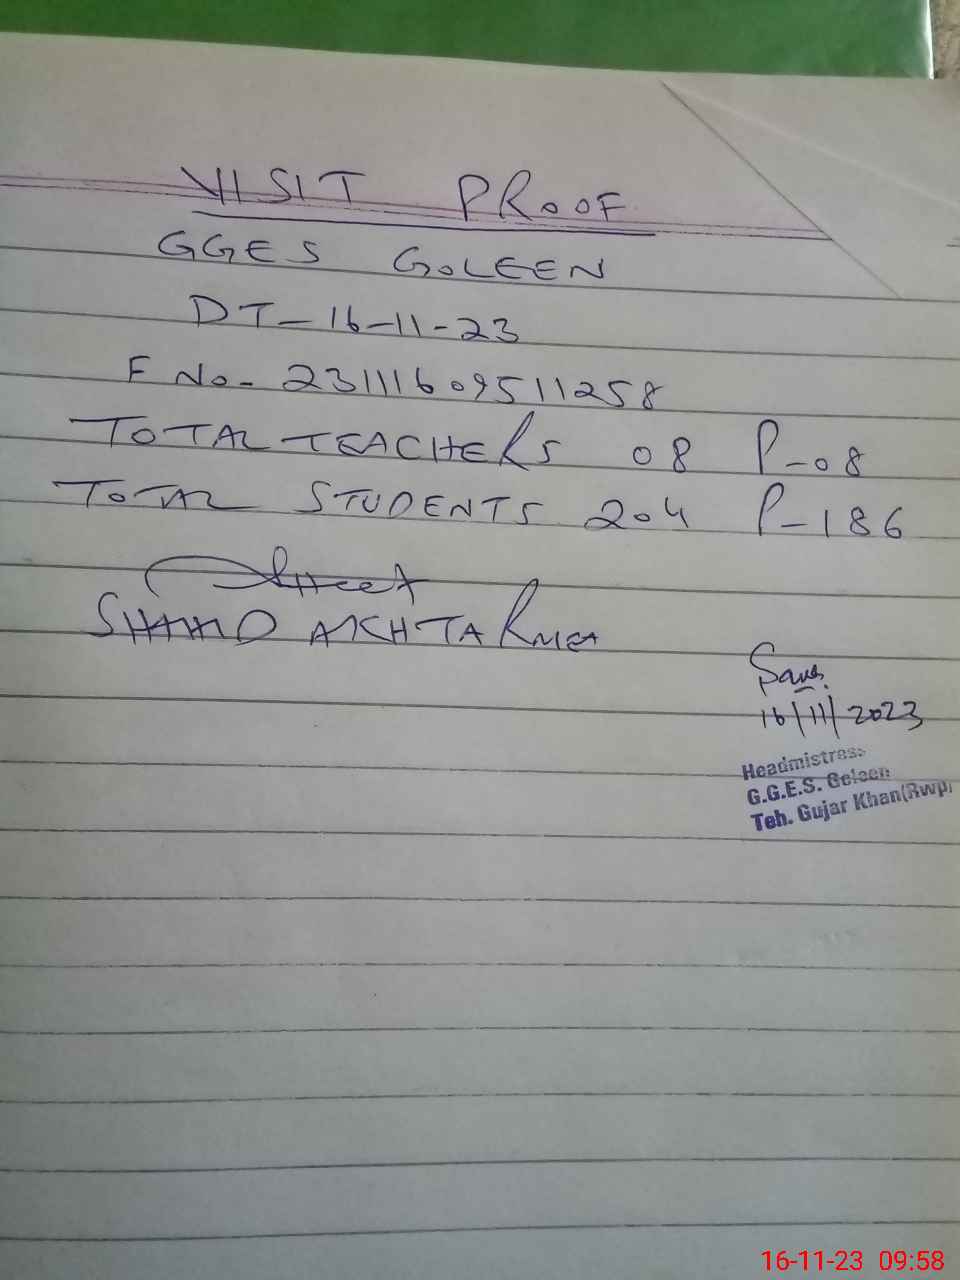 VISIT PROOF
GGES GOLEEN
DT-16-11-23
F No- 23111609511258
TOTAL TEACHERS 08 P-08
TOTAL STUDENTS 204 P-186
AKHTAR MEA
16/11/2023
Headmistress
G.G.E.S. Goleen
Teh. Gujar Khan(Rwp)
16-11-23 09:58